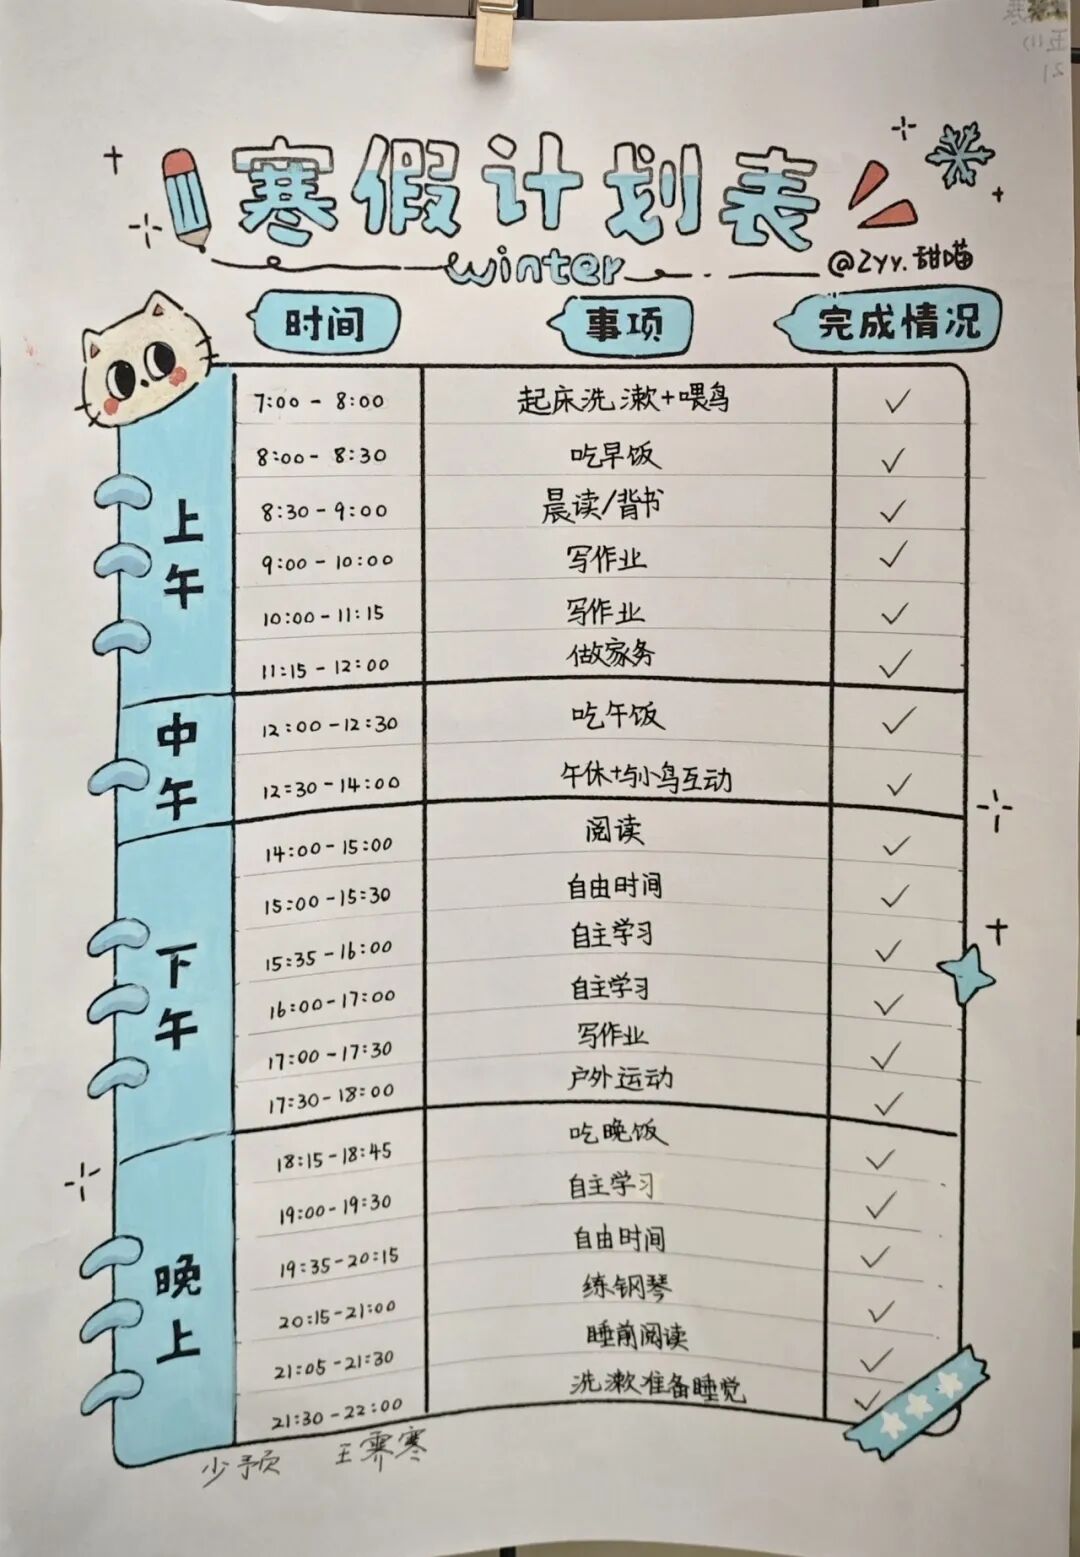 寒假计划表
winter
@Zyy.甜喵
时间 事项 完成情况
上午
7:00 - 8:00 起床洗漱+喂鸟 ✓
8:00 - 8:30 吃早饭 ✓
8:30 - 9:00 晨读/背书 ✓
9:00 - 10:00 写作业 ✓
10:00 - 11:15 写作业 ✓
11:15 - 12:00 做家务 ✓
中午
12:00 - 12:30 吃午饭 ✓
12:30 - 14:00 午休+与小鸟互动 ✓
下午
14:00 - 15:00 阅读 ✓
15:00 - 15:30 自由时间 ✓
15:35 - 16:00 自主学习 ✓
16:00 - 17:00 自主学习 ✓
17:00 - 17:30 写作业 ✓
17:30 - 18:00 户外运动 ✓
晚上
18:15 - 18:45 吃晚饭 ✓
19:00 - 19:30 自主学习 ✓
19:35 - 20:15 自由时间 ✓
20:15 - 21:00 练钢琴 ✓
21:05 - 21:30 睡前阅读 ✓
21:30 - 22:00 洗漱准备睡觉 ✓
王霁寒